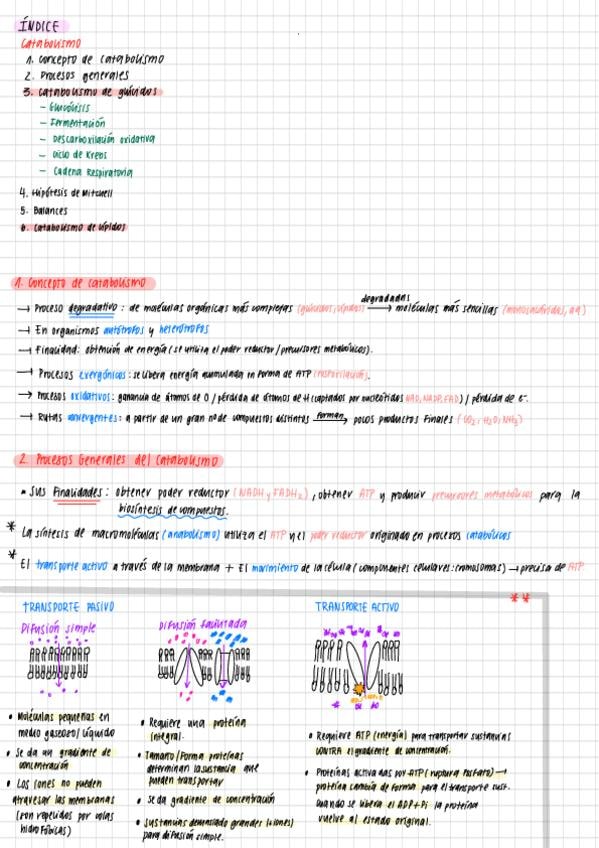 ÍNDICE
Catabolismo
1. Concepto de catabolismo
2. Procesos generales
3. Catabolismo de glúcidos
– Glucólisis
– Fermentación
– Descarboxilación oxidativa
– Ciclo de Krebs
– Cadena Respiratoria
4. Hipótesis de Mitchell
5. Balances
6. Catabolismo de lípidos
1. Concepto de catabolismo
→ Proceso degradativo: de moléculas orgánicas más complejas (glúcidos, lípidos) degradadas → moléculas más sencillas (monosacáridos, aa)
→ En organismos autótrofos y heterótrofos
→ Finalidad: obtención de energía (se utiliza el poder reductor / precursores metabólicos).
→ Procesos exergónicos: se libera energía acumulada en forma de ATP (fosforilación).
→ Procesos oxidativos: ganancia de átomos de O / pérdida de átomos de H (captados por nucleótidos NAD, NADP, FAD) / pérdida de e-.
→ Rutas convergentes: a partir de un gran nº de compuestos distintos forman → pocos productos finales (CO2, H2O, NH3)
2. Procesos Generales del Catabolismo
• Sus Finalidades: obtener poder reductor (NADH y FADH2), obtener ATP y producir precursores metabólicos para la
biosíntesis de compuestos.
* La síntesis de macromoléculas (anabolismo) utiliza el ATP y el poder reductor originado en procesos catabólicos
* El transporte activo a través de la membrana + El movimiento de la célula (componentes celulares: cromosomas) → precisa de ATP
**
TRANSPORTE PASIVO
Difusión simple
• Moléculas pequeñas en
medio gaseoso/líquido
• Se da un gradiente de
concentración
• Los iones no pueden
atravesar las membranas
(son repelidos por colas
hidrofóbicas)
Difusión facilitada
• Requiere una proteína
integral.
• Tamaño/Forma proteínas
determinan la sustancia que
pueden transportar
• Se da gradiente de concentración
• Sustancias demasiado grandes (iones)
para difusión simple.
TRANSPORTE ACTIVO
• Requiere ATP (energía) para transportar sustancias
CONTRA el gradiente de concentración.
• Proteínas activadas por ATP (ruptura fosfato) →
proteína cambia de forma para el transporte sust.
cuando se libera el ADP+Pi la proteína
vuelve al estado original.